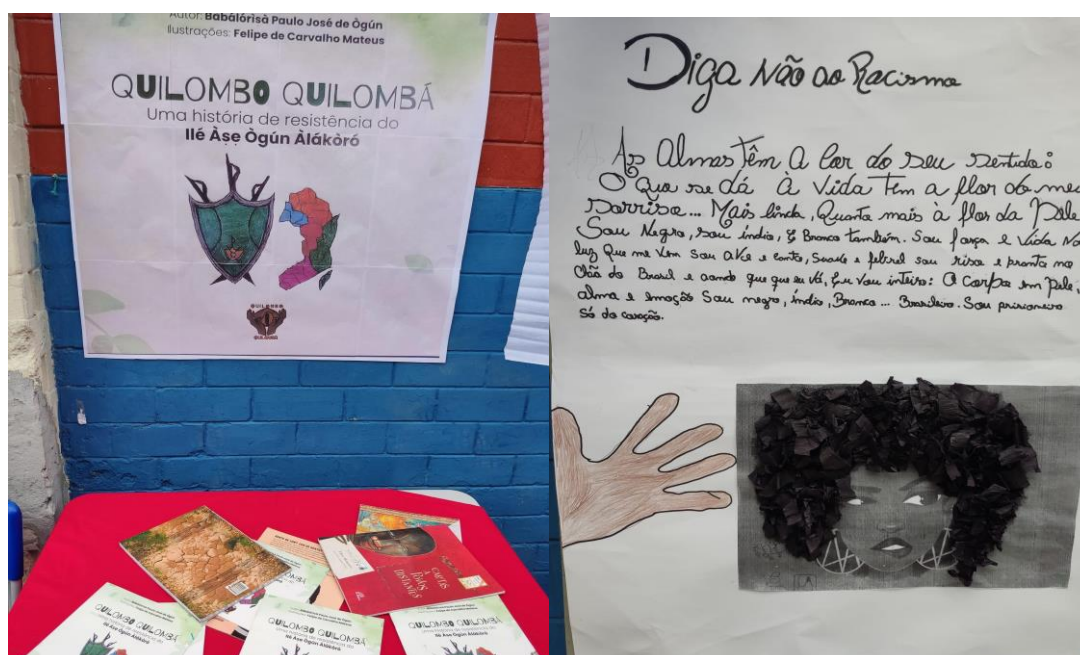 Autor: Babálórìsà Paulo José de Ògún
Ilustrações: Felipe de Carvalho Mateus
QUILOMBO QUILOMBÁ
Uma história de resistência do
Ilé Àse Ògún Àlákòró
CARTAS
A POVOS
DISTANTES
QUILOMBO QUILOMBÁ
Uma história de resistência do
Ilé Àse Ògún Àlákòró
QUILOMBO QUILOMBÁ
Uma história de resistência do
Ilé Àse Ògún Àlákòró
QUILOMBO QUILOMBÁ
Uma história de resistência do
Ilé Àse Ògún Àlákòró
Diga Não ao Racismo
As Almas Têm A Cor do Seu Sentido:
O Que se dá À Vida Tem a flor do meu
Sorriso... Mais linda, Quanto mais à flor da Pele
Sou Negro, sou índio, E Branco também. Sou força e Vida Na
luz Que me Vem Sou Ave e canto, Suave e febril sou riso e pranto no
Chão do Brasil e aonde que que eu vá, Eu Vou inteiro: O Corpo em Pele,
alma e emoção Sou negro, índio, Branco... Brasileiro. Sou prisioneiro
Só do coração.